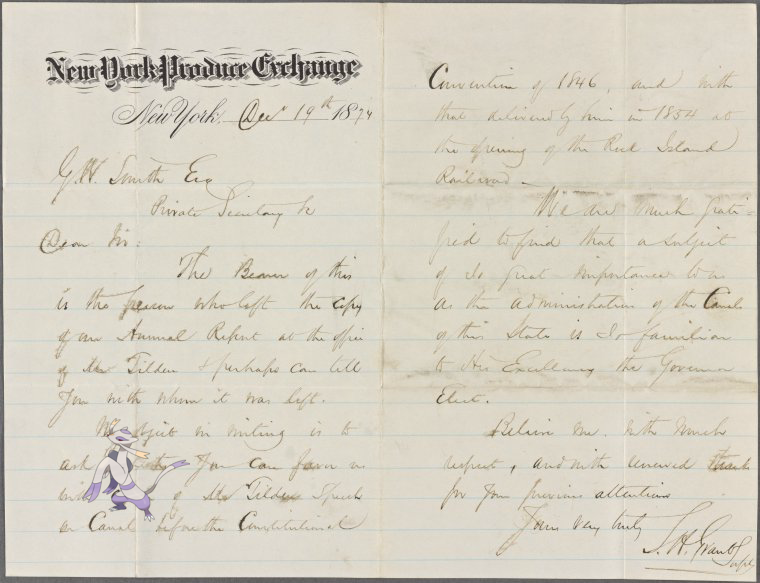 New York Produce Exchange
New York, Decr 19th 1874
G. W. Smith Esq
Private Secretary &c
Dear Sir:
The Bearer of this
is the person who left the copy
of our Annual Report at the office
of Mr Tilden & perhaps can tell
you with whom it was left.
My object in writing is to
ask you can favor us
of Mr Tildens Speech
on Canal before the Constitutional
Convention of 1846, and with
that delivered by him in 1854 at
the opening of the Rock Island
Railroad —
We are much grati-
fied to find that a subject
of so great importance to us
as the administration of the Canals
of this State is so familiar
to His Excellency the Governor
Elect.
Believe me with much
respect, and with renewed thanks
for your previous attentions
Yours very truly
S. H. Grant Supt